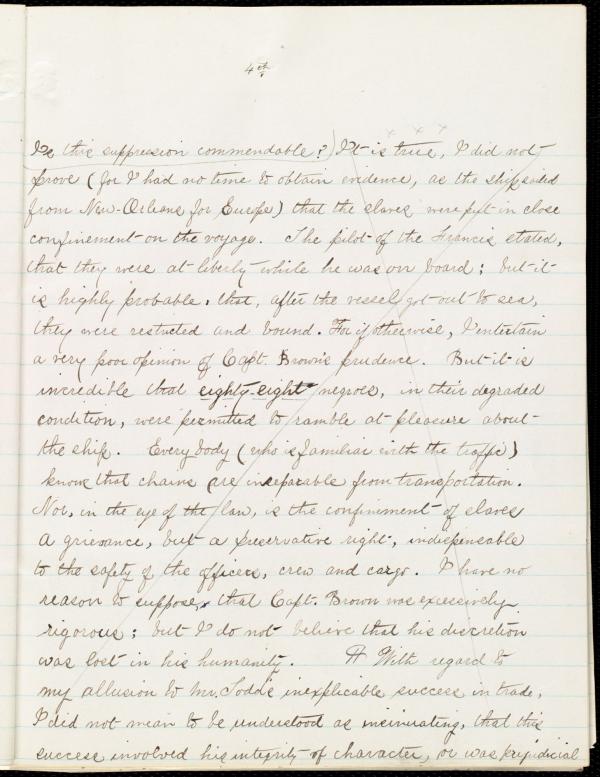 4th.
Is this suppression commendable?) It is true, I did not
prove (for I had no time to obtain evidence, as the ship sailed
from New-Orleans for Europe) that the slaves were put in close
confinement on the voyage. The pilot of the Francis stated,
that they were at liberty while he was on board; but it
is highly probable, that, after the vessel got out to sea,
they were restricted and bound. For if otherwise, I entertain
a very poor opinion of Capt. Brown's prudence. But it is
incredible that eighty-eight negroes, in their degraded
condition, were permitted to ramble at pleasure about
the ship. Every body (who is familiar with the traffic)
knows that chains are inseparable from transportation.
Nor, in the eye of the law, is the confinement of slaves
a grievance, but a preservative right, indispensable
to the safety of the officers, crew and cargo. I have no
reason to suppose, that Capt. Brown was excessively
rigorous; but I do not believe that his discretion
was lost in his humanity. With regard to
my allusion to Mr. Todd's inexplicable success in trade,
I did not mean to be understood as insinuating, that this
success involved his integrity of character, or was prejudicial